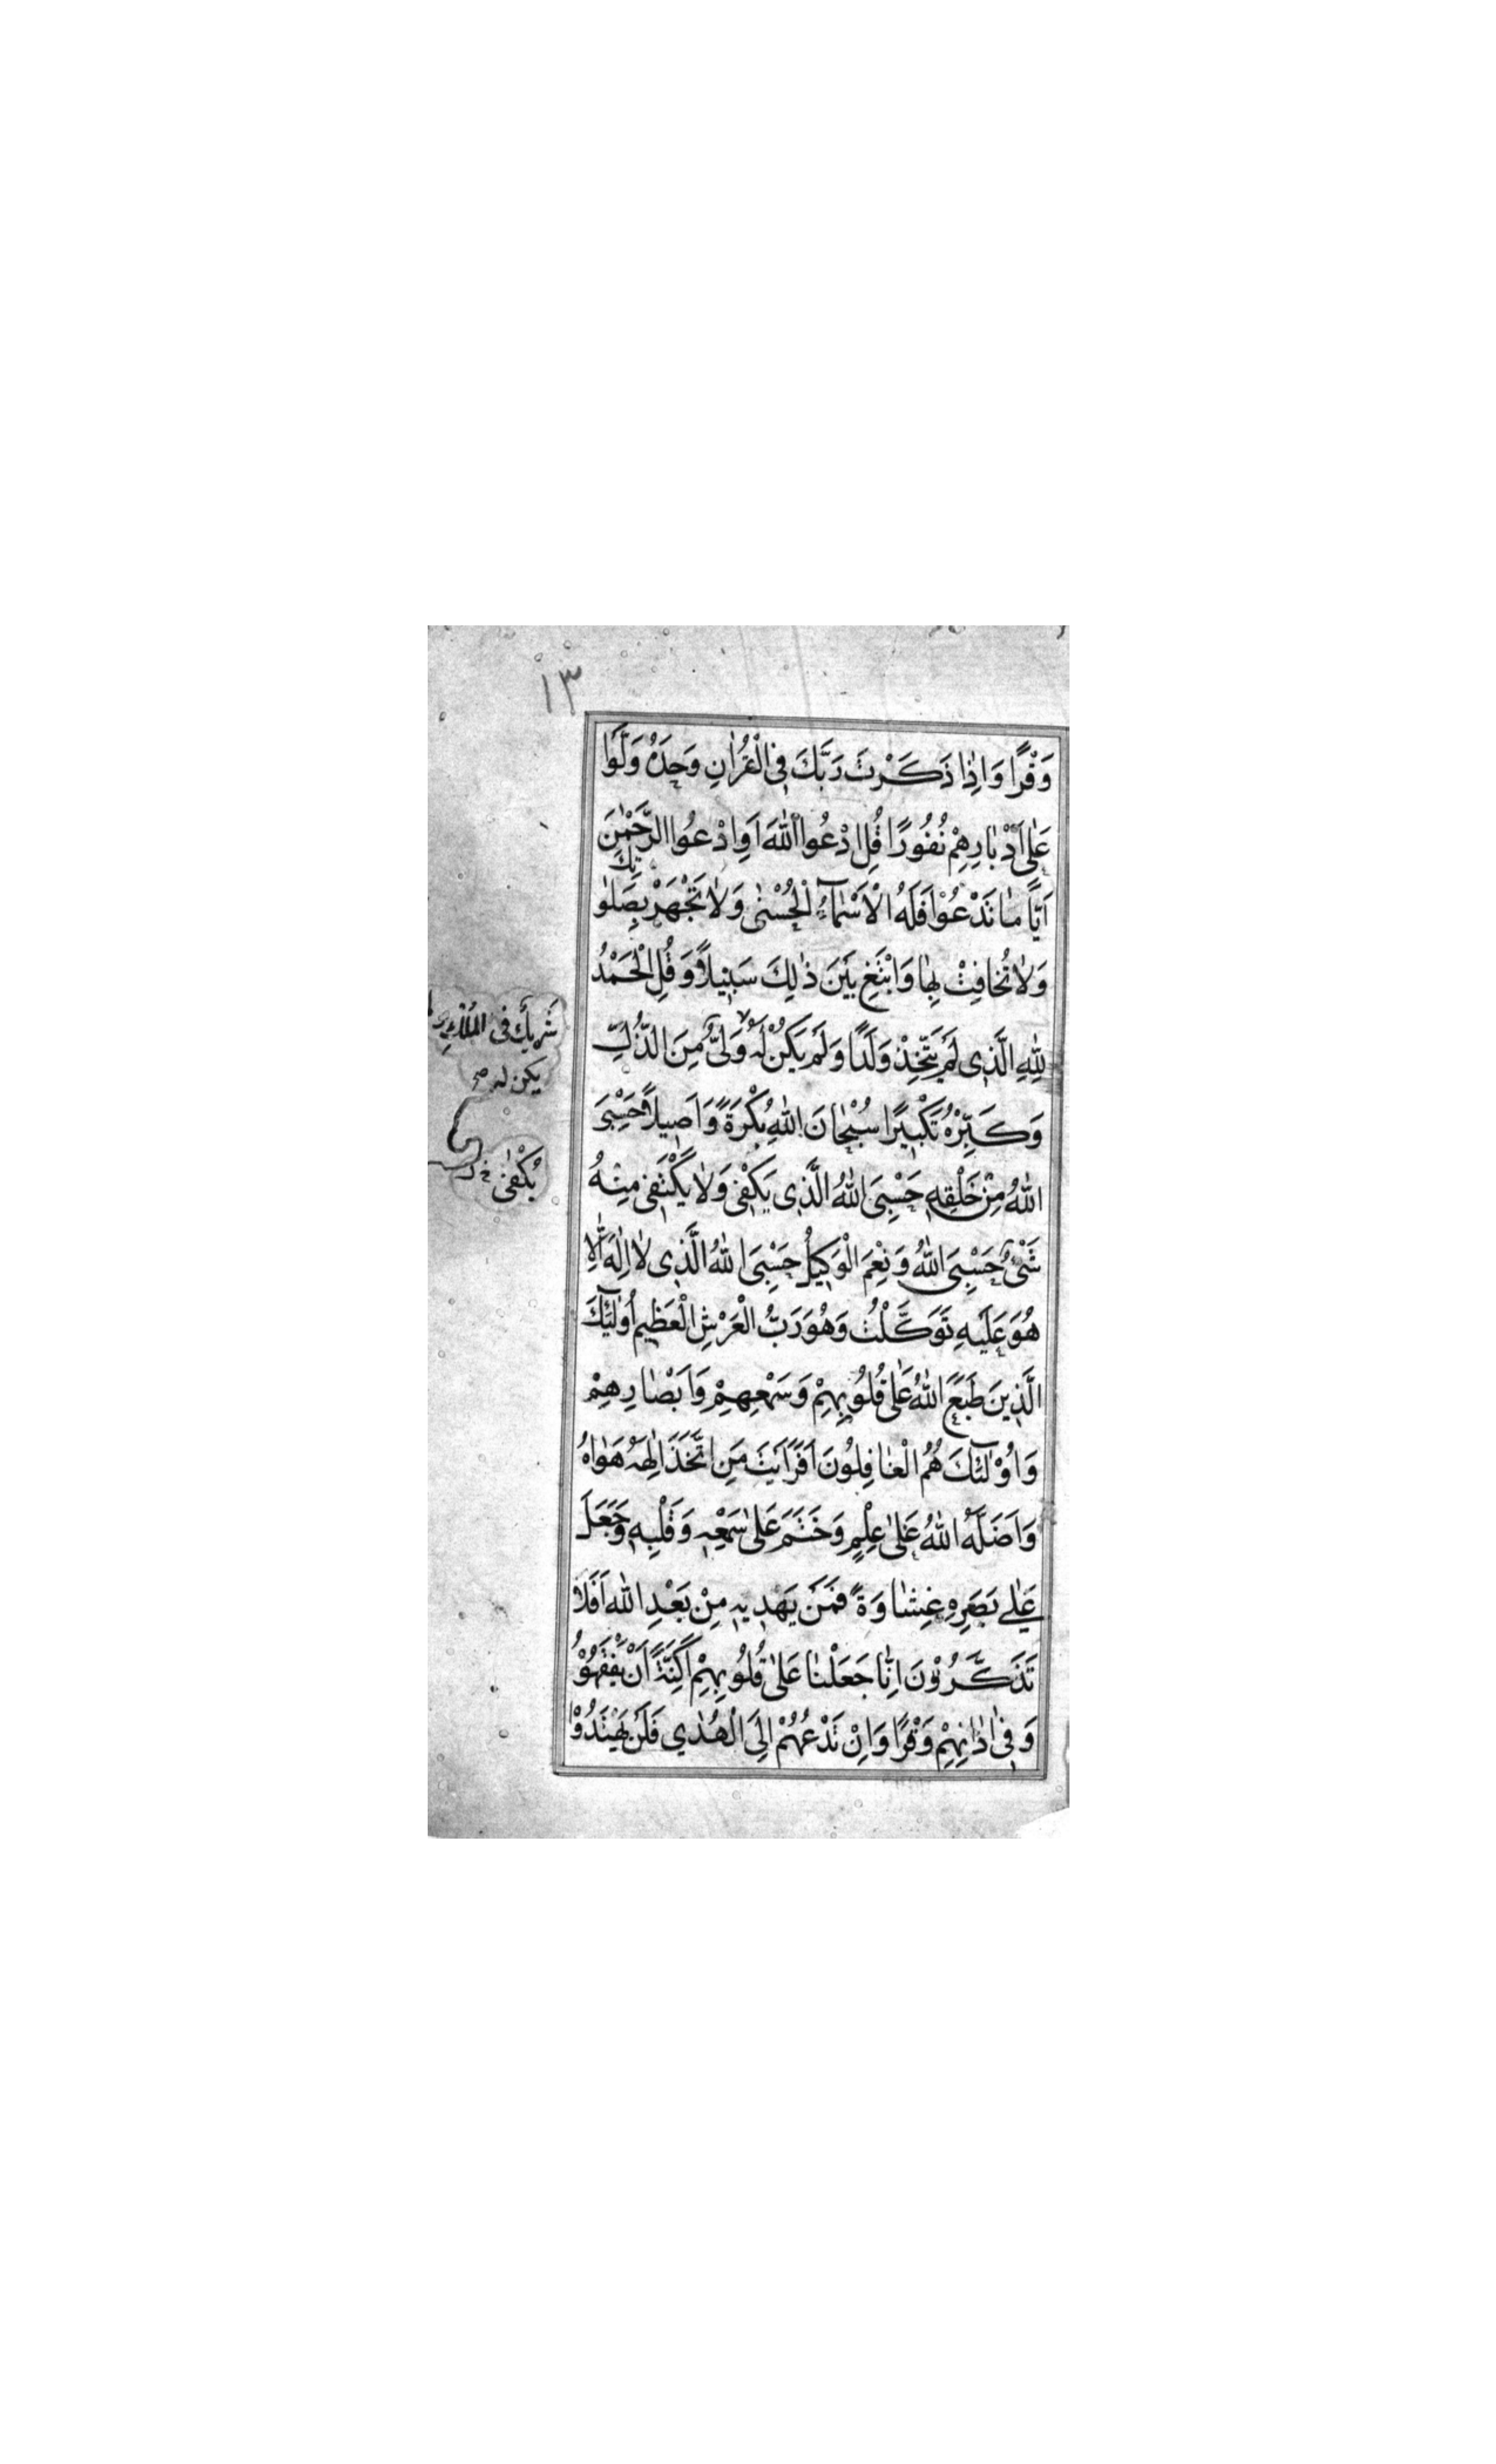 ١٣
وَقْرًا وَاِذٰا ذَكَرْتَ رَبَّكَ فِی الْقُرْاٰنِ وَحْدَهُ وَلَّوْا
عَلٰى اَدْبٰارِهِمْ نُفُورًا قُلِ ادْعُوا اللّٰهَ اَوِ ادْعُوا الرَّحْمٰنَ
اَیًّا مٰا تَدْعُوْا فَلَهُ الْاَسْمٰٓاءُ الْحُسْنٰى وَلٰا تَجْهَرْ بِصَلٰوتِكَ
وَلٰا تُخٰافِتْ بِهٰا وَابْتَغِ بَیْنَ ذٰلِكَ سَبِیلًا وَقُلِ الْحَمْدُ
لِلّٰهِ الَّذِی لَمْ یَتَّخِذْ وَلَدًا وَلَمْ یَكُنْ لَهُ وَلِیٌّ مِنَ الذُّلِّ
شَرِیكٌ فی الْمُلْكِ
یكن له صح
وَكَبِّرْهُ تَكْبِیرًا سُبْحٰانَ اللّٰهِ بُكْرَةً وَاَصِیلًا حَسْبِیَ
اللّٰهُ مِنْ خَلْقِهِ حَسْبِیَ اللّٰهُ الَّذِی یَكْفِی وَلٰا یَكْتَفِی مِنْهُ
یُكْفٰى خ ل
شَیْءٌ حَسْبِیَ اللّٰهُ وَنِعْمَ الْوَكِیلُ حَسْبِیَ اللّٰهُ الَّذِی لٰا اِلٰهَ اِلّٰا
هُوَ عَلَیْهِ تَوَكَّلْتُ وَهُوَ رَبُّ الْعَرْشِ الْعَظِیمِ اُولٰٓئِكَ
الَّذِینَ طَبَعَ اللّٰهُ عَلٰى قُلُوبِهِمْ وَسَمْعِهِمْ وَاَبْصٰارِهِمْ
وَاُوْلٰٓئِكَ هُمُ الْغٰافِلُونَ اَفَرَاَیْتَ مَنِ اتَّخَذَ اِلٰهَهُ هَوٰاهُ
وَاَضَلَّهُ اللّٰهُ عَلٰى عِلْمٍ وَخَتَمَ عَلٰى سَمْعِهِ وَقَلْبِهِ وَجَعَلَ
عَلٰی بَصَرِهِ غِشٰاوَةً فَمَنْ یَهْدِیهِ مِنْ بَعْدِ اللّٰهِ اَفَلٰا
تَذَكَّرُوْنَ اِنّٰا جَعَلْنٰا عَلٰى قُلُوبِهِمْ اَكِنَّةً اَنْ یَفْقَهُوْهُ
وَفِی اٰذٰانِهِمْ وَقْرًا وَاِنْ تَدْعُهُمْ اِلَى الْهُدٰی فَلَنْ یَهْتَدُوْا